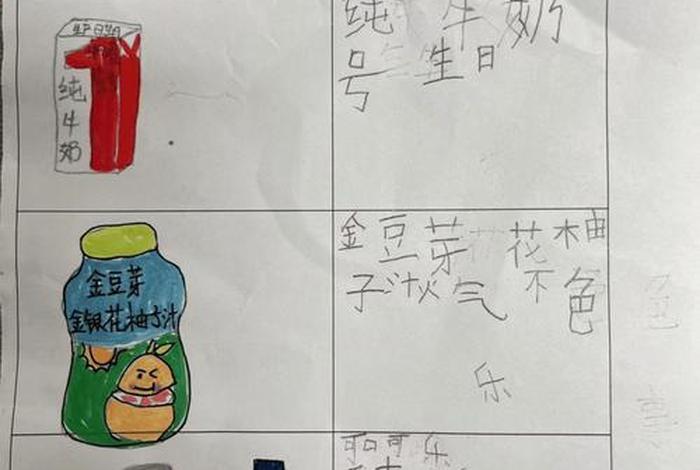 生日
纯
牛
奶
纯 牛 奶
号 生 日
金豆芽
金银花柚子汁
金 豆 芽 花 柚
子 汁 火 气 不 色
乐
可口可乐